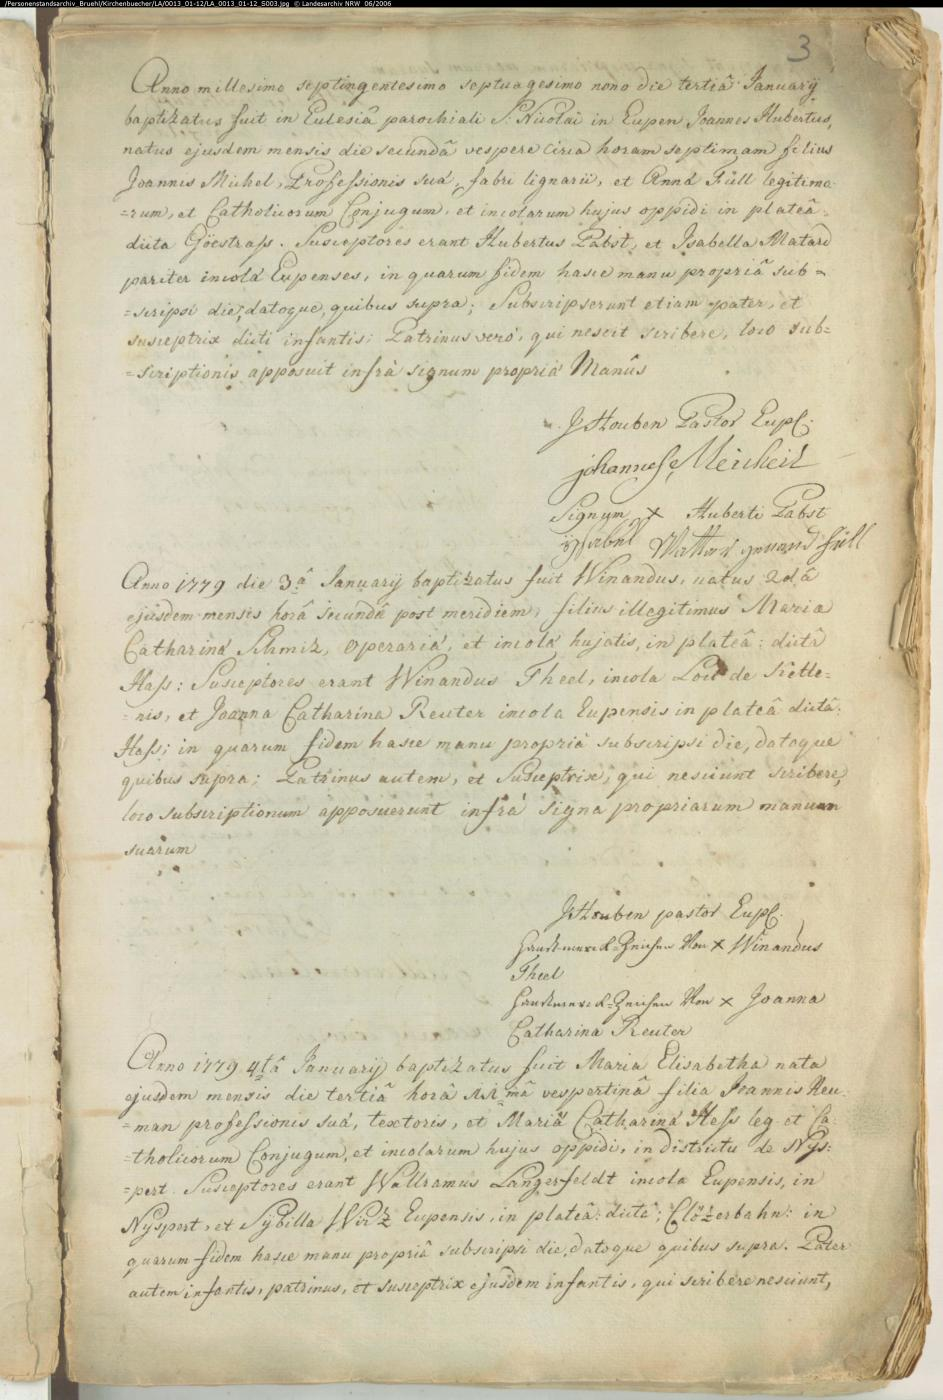 /Personenstandsarchiv_Bruehl/Kirchenbuecher/LA/0013_01-12/LA_0013_01-12_S003.jpg © Landesarchiv NRW 06/2006
3
Anno millesimo septingentesimo septuagesimo nono die tertiâ Januarij
baptizatus fuit in Eclesiâ parochiali S. Nicolai in Eupen Joannes Hubertus,
natus ejusdem mensis die secundâ vespere circa horam septimam filius
Joannis Michel, Professionis suâ, fabri lignarii, et Anna Füll legitimo-
=rum, et Catholicorum Conjugum, et incolarum hujus oppidi in plateâ
dicta Göestrass. Susceptores erant Hubertus Pabst, et Isabella Matard
pariter incolâ Eupenses, in quarum fidem hasce manu propriâ sub=
=scripsi die, datoque, quibus supra; Subscripserunt etiam pater, et
susceptrix dicti infantis; Patrinus verò, qui nescit scribere, loco sub=
=scriptionis apposuit infrà signum propriâ Manûs
J Houben Pastor Eup.
johannes
Signum x Huberti Pabst
Füll
Anno 1779 die 3â Januarij baptizatus fuit Winandus, natus 2dâ
ejusdem mensis horâ secundâ post meridiem, filius illegitimus Maria
Catharinâ Schmiz, operariâ, et incolâ hujatis, in plateâ: dictâ
Hass: Susceptores erant Winandus Theel, incola Loci de Kette=
=nis, et Joanna Catharina Reuter incola Eupensis in plateâ dictâ:
Hass; in quarum fidem hasce manu propriâ subscripsi die, datoque
quibus supra; Patrinus autem, et Susceptrix, qui nesciunt scribere,
loco subscriptionum apposuerunt infrà signa propriarum manuum
suarum
J Houben pastor Eup.
Handtmerck=Zeichen Von x Winandus
Theel
Handtmerck=Zeichen Von x Joanna
Catharina Reuter
Anno 1779 4tâ Januarij baptizatus fuit Maria Elisabetha nata
ejusdem mensis die tertiâ horâ 11mâ vespertinâ filia Joannis Heu-
=man professionis suâ, textoris, et Mariâ Catharinâ Hess leg. et Ca-
=tholicorum Conjugum, et incolarum hujus oppidi, in districtu de Nys=
=pert. Susceptores erant Wallramus Langerfeldt incola Eupensis, in
Nyspert, et Sybilla Wirtz Eupensis, in plateâ: dictâ; Clözerbahn: in
quarum fidem hasce manu propriâ subscripsi die, datoque quibus supra. Pater
autem infantis, patrinus, et susceptrix ejusdem infantis, qui scribere nesciunt,